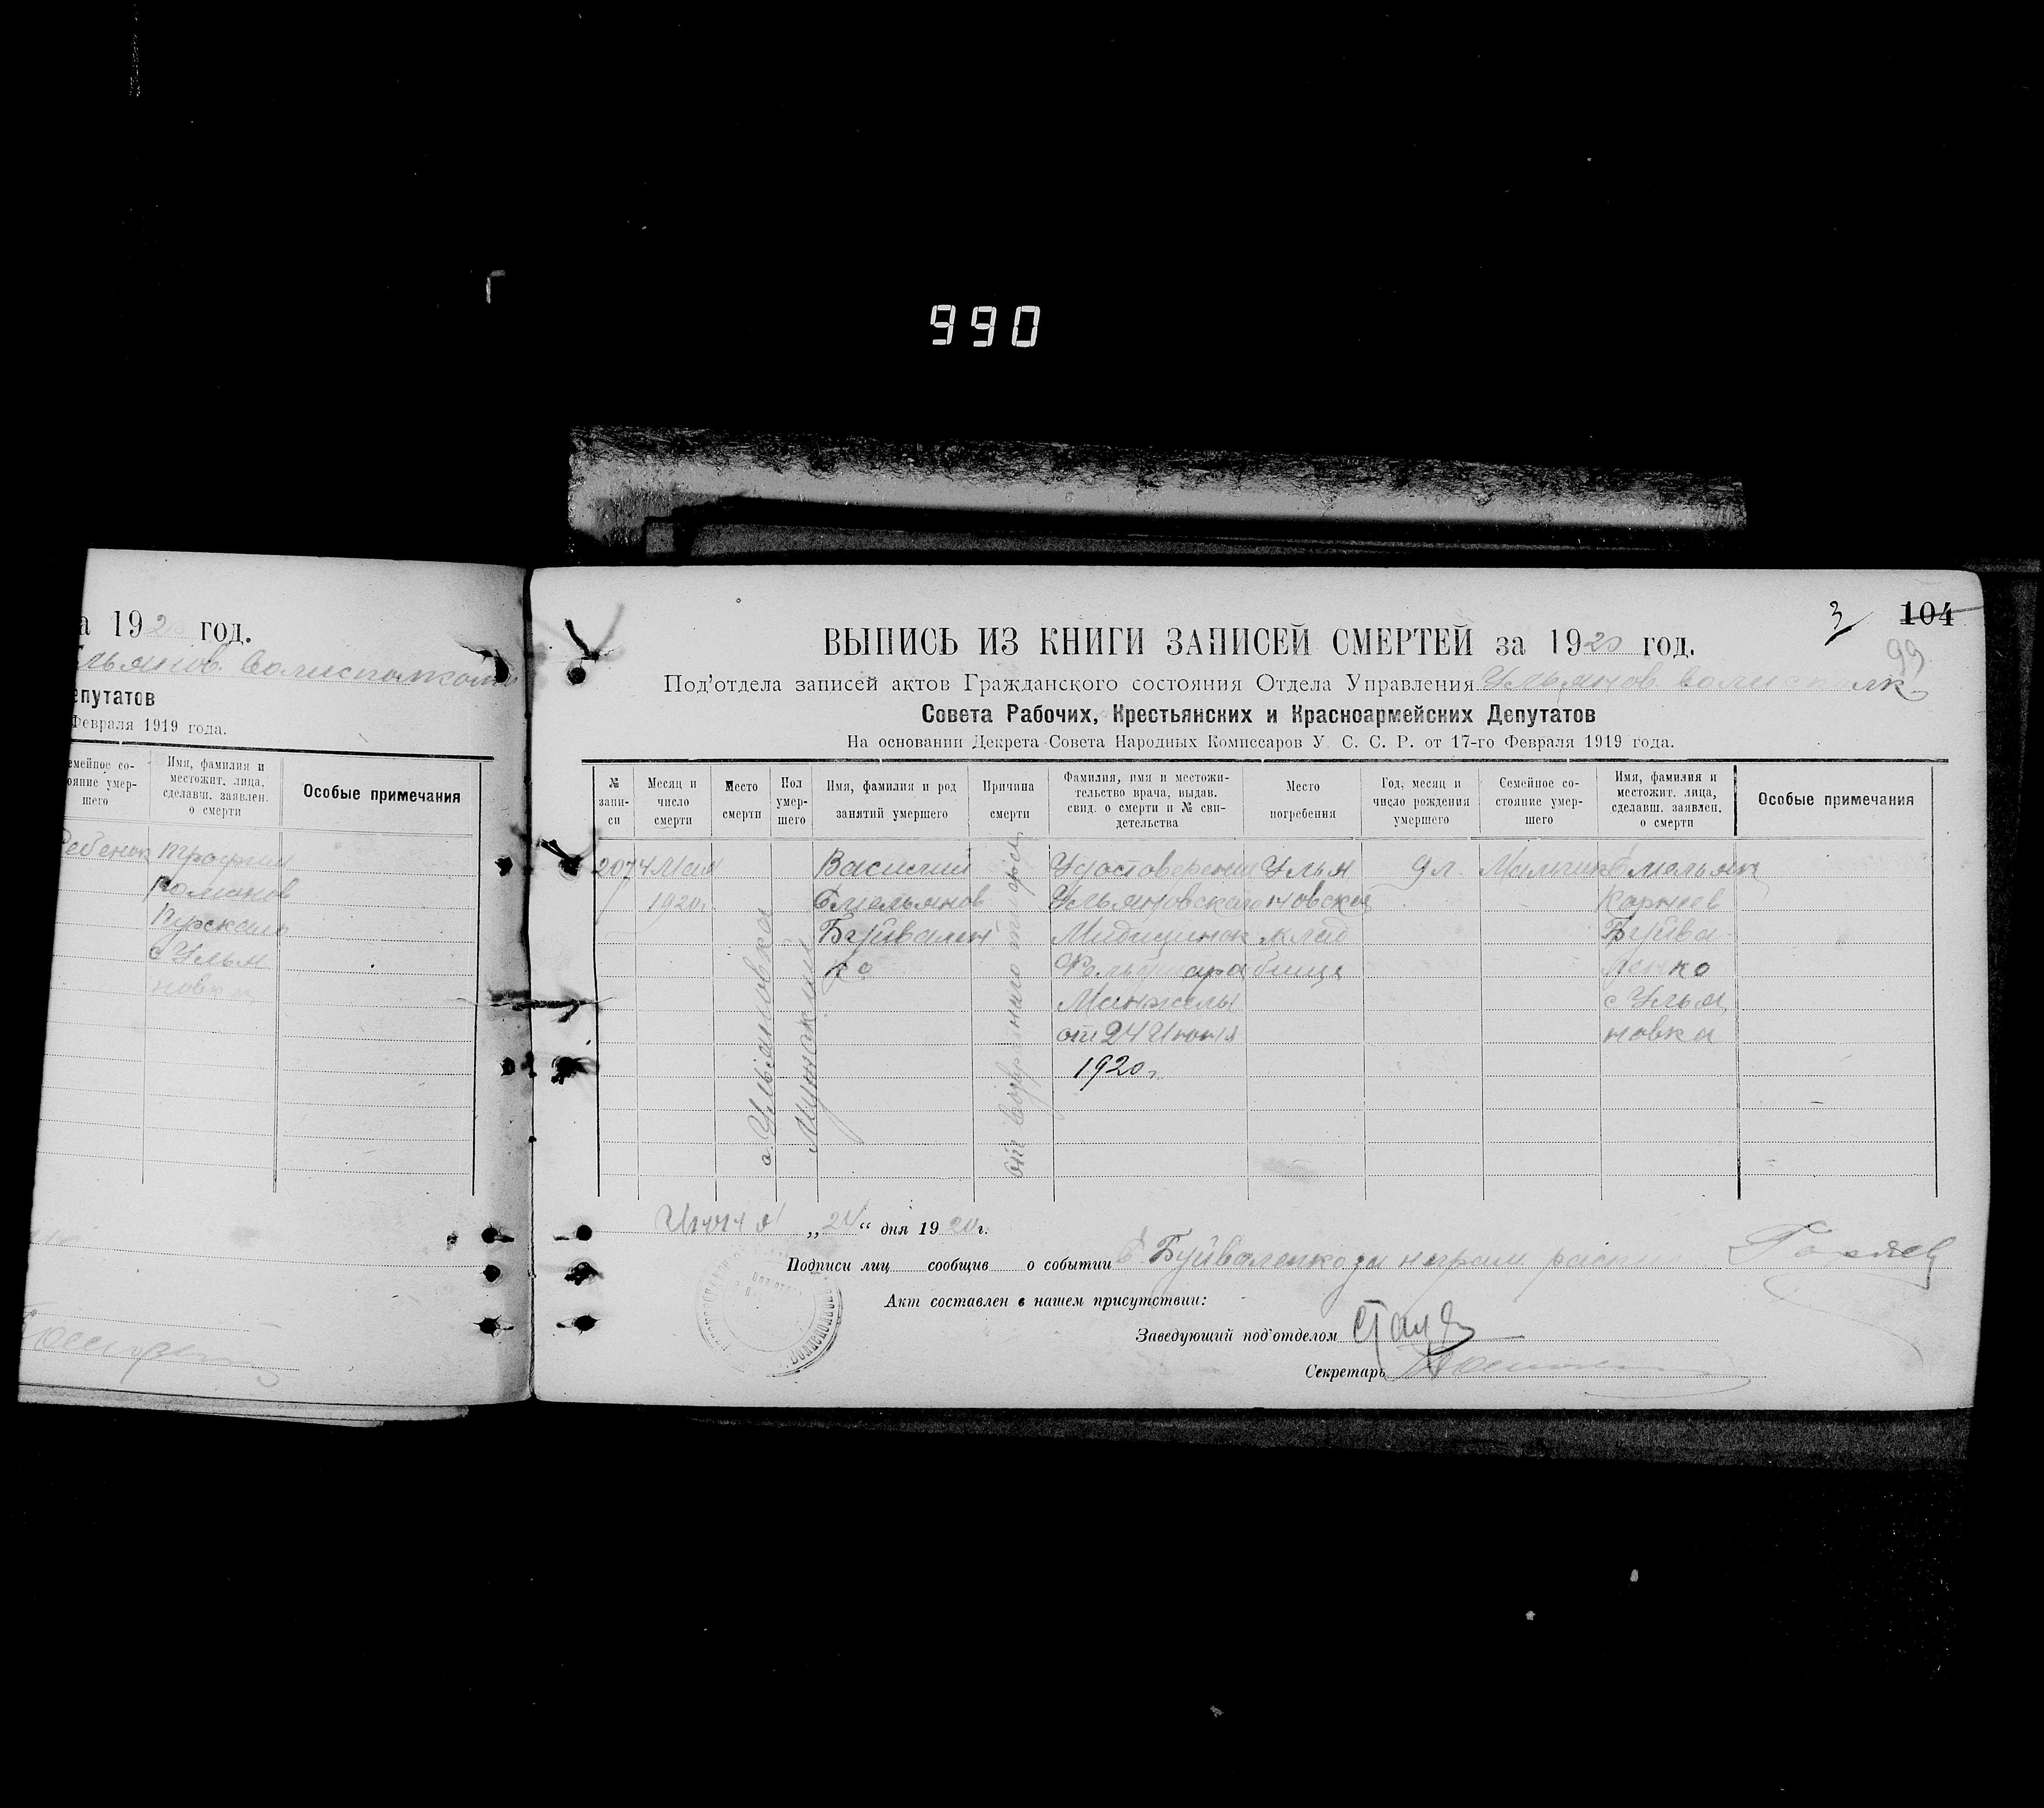 990
а 1920 год.
льянов. Волисполком
епутатов
Февраля 1919 года.
емейное со-
ояние умер-
шего
Имя, фамилия и
местожит. лица,
сделавш. заявлен.
о смерти
Особые примечания
Ребенок
Трофим
Романов
с Улья
новка
3
104
99
ВЫПИСЬ ИЗ КНИГИ ЗАПИСЕЙ СМЕРТЕЙ за 1920 год.
Под'отдела записей актов Гражданского состояния Отдела Управления Ульянов. Волисполк
Совета Рабочих, Крестьянских и Красноармейских Депутатов
На основании Декрета Совета Народных Комиссаров У. С. С. Р. от 17-го Февраля 1919 года.
№
запи-
си
Месяц и
число
смерти
Место
смерти
Пол
умер-
шего
Имя, фамилия и род
занятий умершего
Причина
смерти
Фамилия, имя и местожи-
тельство врача, выдав.
свид. о смерти и № сви-
детельства
Место
погребения
Год, месяц и
число рождения
умершего
Семейное со-
стояние умер-
шего
Имя, фамилия и
местожит. лица,
сделавш. заявлен.
о смерти
Особые примечания
207
4 Мая
1920г.
с. Ульяновка
Мужской
Василий
Емельянов
Буйвален
ко
от
тифа
Удостоверении
Ульяновского
Медицинск
Фельдшера
Манжелы
от 24 Июня
1920г.
Улья
новское
клад
бище
9 л.
Мальчик
Емельян
Корнеев
Буйва
ленко
с Улья
новка
Июня „24“ дня 1920г.
Подписи лиц сообщив о событии Е. Буйваленко за неграм. распи
Акт составлен в нашем присутствии:
Заведующий под'отделом
Секретарь